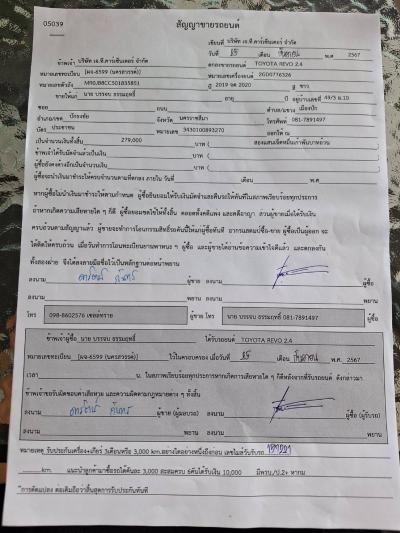 05039
สัญญาขายรถยนต์
เขียนที่ บริษัท เอ.ที.คาร์เซ็นเตอร์ จำกัด
วันที่ เดือน พ.ศ. 2567
ข้าพเจ้า บริษัท เอ.ที.คาร์เซ็นเตอร์ จำกัด ตกลงขายรถยนต์ TOYOTA REVO 2.4
หมายเลขทะเบียน (ผง-6599 (นครสวรรค์)) หมายเลขเครื่องยนต์ 2GD0776326
หมายเลขตัวถัง ปี 2019 จด 2020 สี ขาว
ขายให้แก่ นาย บรรจบ ธรรมฤทธิ์ อายุ ปี อยู่บ้านเลขที่ 49/3 ม.10
ซอย ถนน ตำบล/แขวง เมืองปัก
อำเภอ/เขต ปักธงชัย จังหวัด นครราชสีมา โทรศัพท์ 081-7891497
บัตร ประชาชน หมายเลข 3430100893270 ออกให้ ณ
เป็นจำนวนเงินทั้งสิ้น 279,000 บาท ( สองแสนเจ็ดหมื่นเก้าพันบาทถ้วน
ข้าพเจ้าได้รับมัดจำแล้วเป็นเงิน บาท (
ผู้ซื้อยังคงค้างอีกเป็นจำนวนเงิน บาท (
ผู้ซื้อจะนำเงินมาชำระให้ครบจำนวนตามที่ตกลง ภายใน วันที่ เดือน พ.ศ.
หากผู้ซื้อไม่นำเงินมาชำระให้ตามกำหนด ผู้ซื้อยินยอมให้ริบเงินมัดจำและคืนรถให้ทันทีในสภาพเรียบร้อยทุกประการ
ถ้าหากเกิดความเสียหายใด ๆ ก็ดี ผู้ซื้อยอมชดใช้ให้ทั้งสิ้น ตลอดทั้งคดีแพ่ง และคดีอาญา ส่วนผู้ขายเมื่อได้รับเงิน
ครบถ้วนตามสัญญาแล้ว ผู้ขายจะทำการโอนกรรมสิทธิ์รถคันนี้ให้แก่ผู้ซื้อทันที อากรแสตมป์ซื้อ-ขาย ผู้ซื้อเป็นผู้ออก จะ
ได้ติดให้ครบถ้วน เมื่อวันทำการโอนทะเบียนยานพาหนะ ฯ ผู้ซื้อ และผู้ขายได้อ่านข้อความเข้าใจดีแล้ว และตกลงกัน
ทั้งสองฝ่าย จึงได้ลงลายมือชื่อไว้เป็นหลักฐานต่อหน้าพยาน
ลงนาม ผู้ขาย ลงนาม ผู้ซื้อ
ลงนาม พยาน ลงนาม พยาน
โทร 098-8602576 เซลล์ทราย ผู้ขาย โทร นาย บรรจบ ธรรมฤทธิ์ 081-7891497 ผู้ซื้อ
ข้าพเจ้าผู้ซื้อ นาย บรรจบ ธรรมฤทธิ์ ได้รับรถยนต์ TOYOTA REVO 2.4
หมายเลขทะเบียน (ผง-6599 (นครสวรรค์)) ไว้ในครอบครอง เมื่อวันที่ เดือน พ.ศ. 2567
เวลา น. ในสภาพเรียบร้อยทุกประการหากเกิดการเสียหายใด ๆ ก็ดีหลังจากที่รับรถยนต์ ดังกล่าวมา
ข้าพเจ้าขอรับผิดชอบค่าเสียหาย และความผิดตามกฎหมายต่าง ๆ ทั้งสิ้น
ลงนาม ผู้ขาย (ผู้มอบรถ) ลงนาม ผู้ซื้อ (ผู้รับรถ)
ลงนาม พยาน ลงนาม พยาน
หมายเหตุ รับประกันเครื่อง+เกียร์ 3เดือนหรือ 3,000 km.อย่างใดอย่างหนึ่งถึงก่อน เลขไมล์วันรับรถ
km. แนะนำลูกค้ามาซื้อรถได้คันละ 3,000 สะสมครบ 6คันได้รับเงิน 10,000 มีพรบ./ป.2+
*การดัดแปลง ต่อเติมถือว่าสิ้นสุดการรับประกันทันที